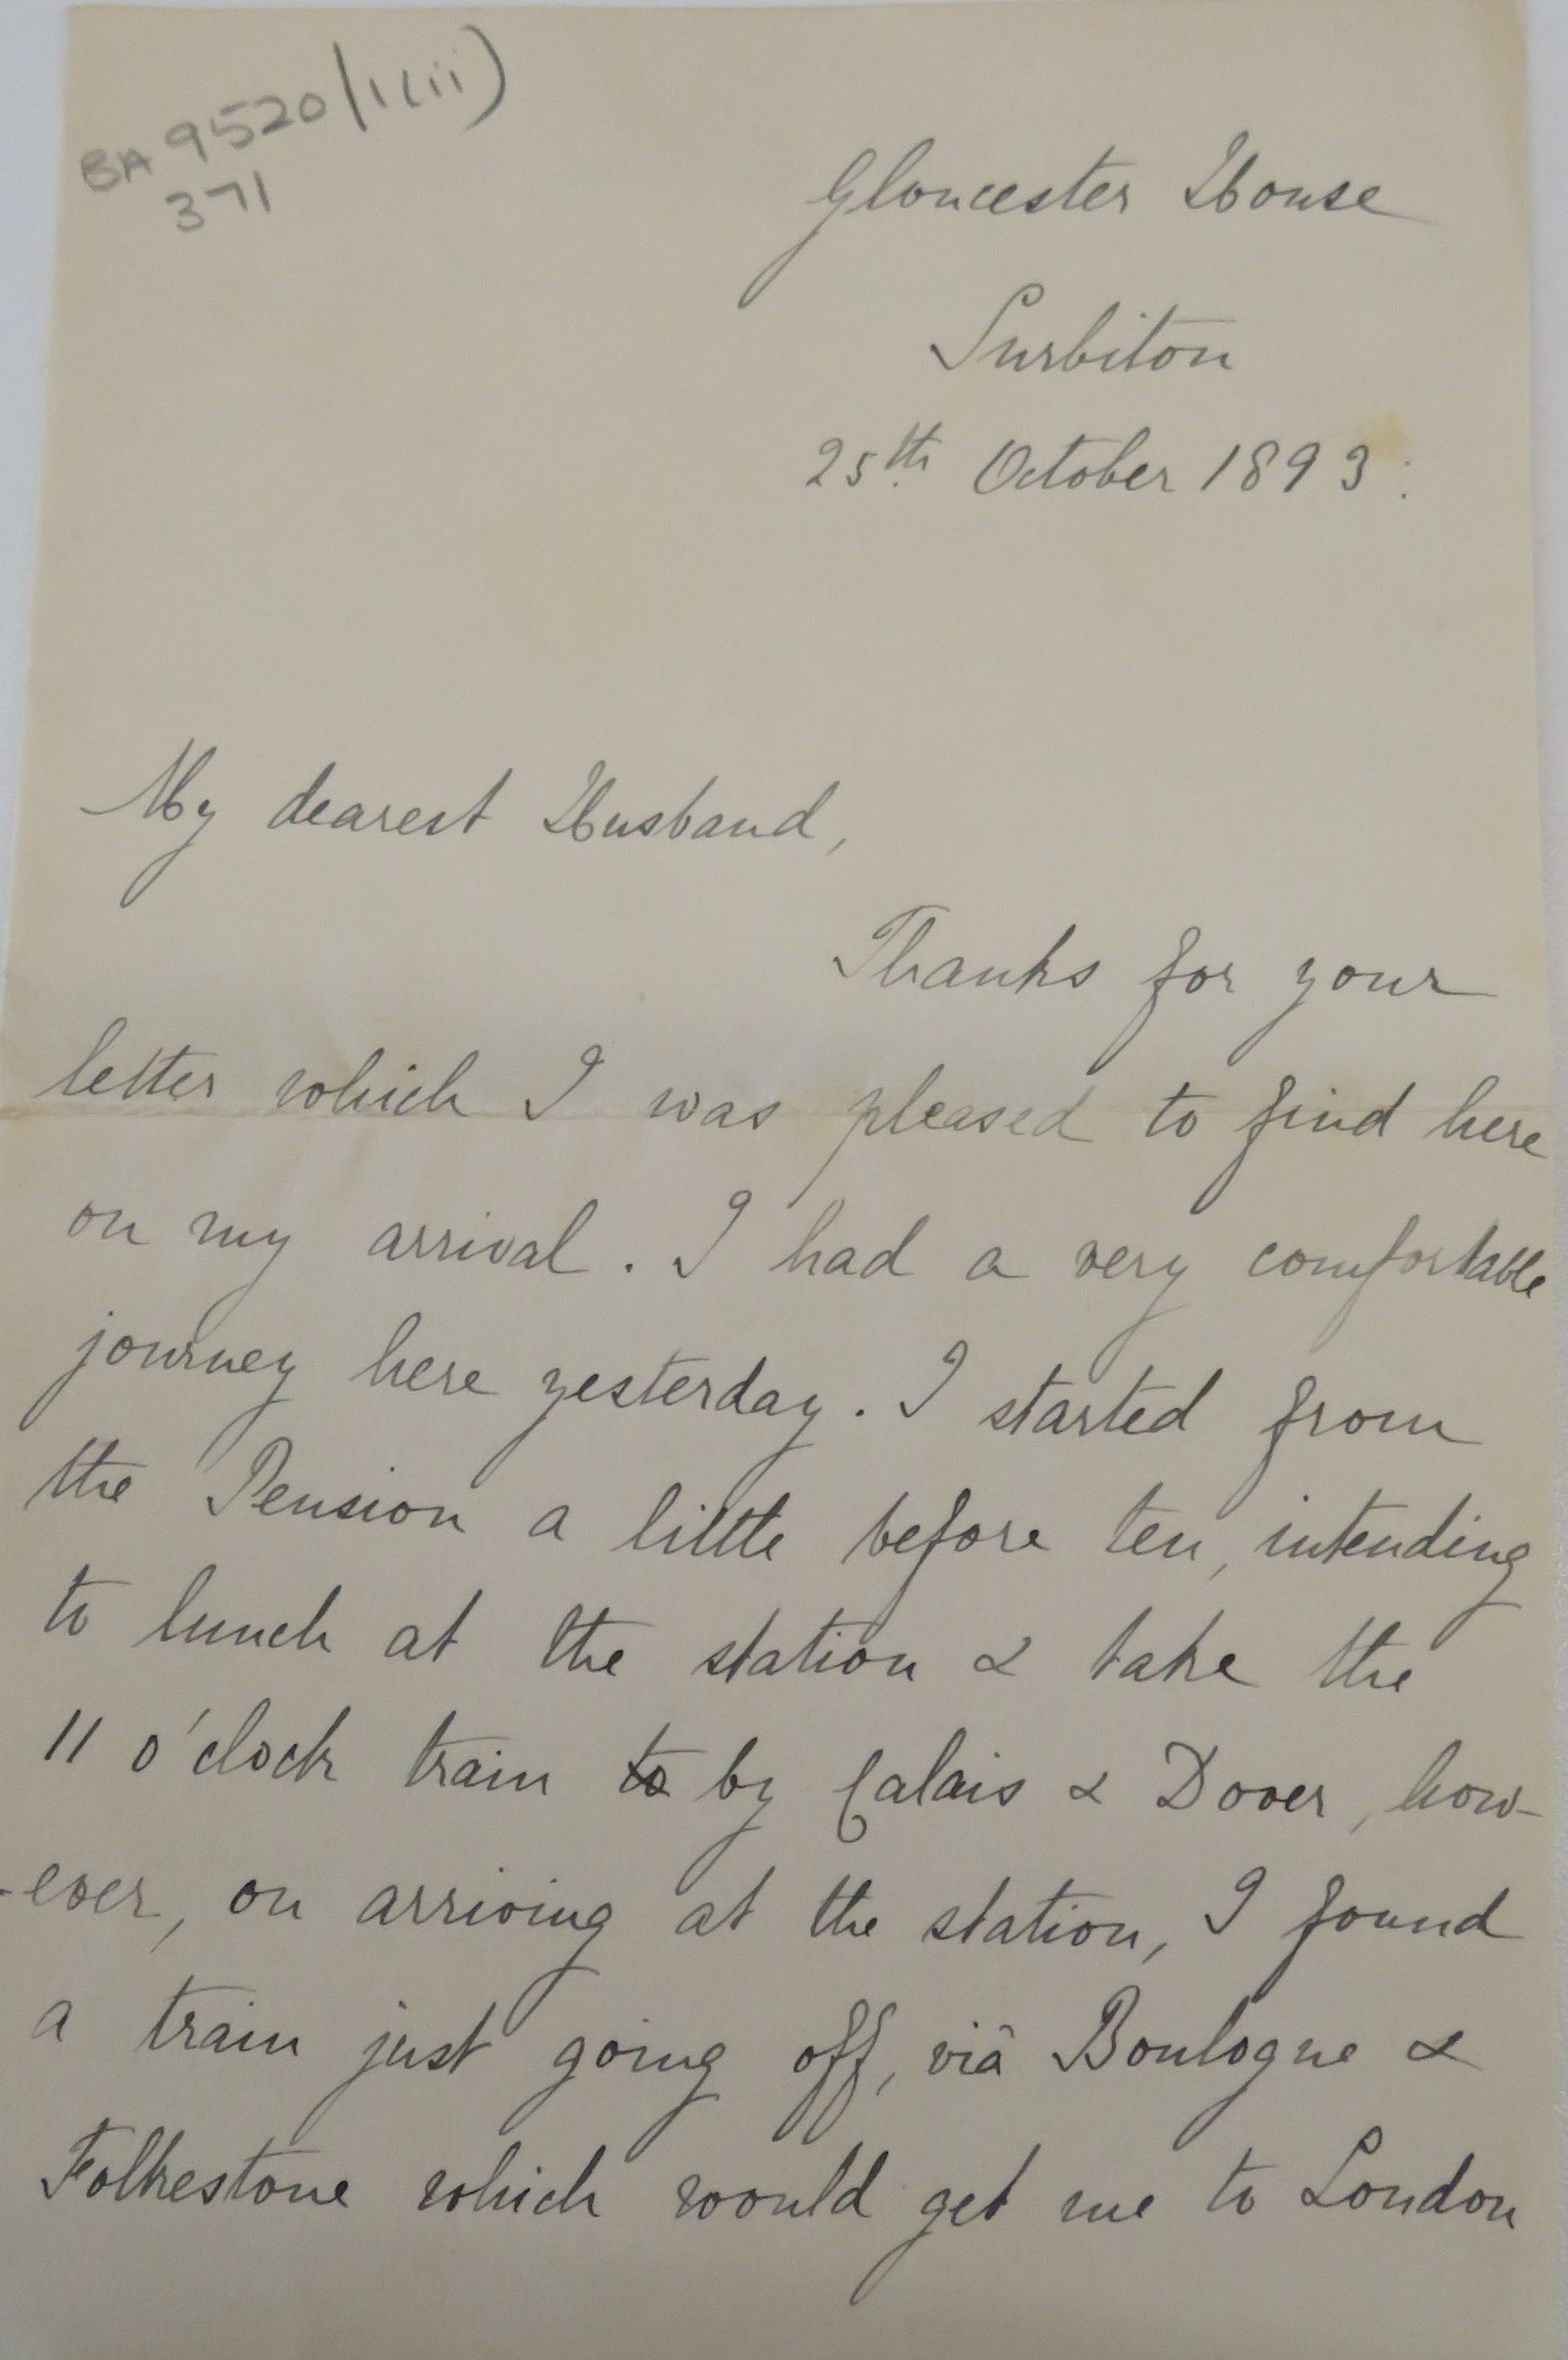 BA 9520/1(iii)
371
Gloucester House
Surbiton
25th October 1893.
My dearest Husband,
Thanks for your
letter which I was pleased to find here
on my arrival. I had a very comfortable
journey here yesterday. I started from
the Pension a little before ten, intending
to lunch at the station & take the
11 o'clock train to by Calais & Dover, how-
-ever, on arriving at the station, I found
a train just going off, viâ Boulogne &
Folkestone which would get me to London